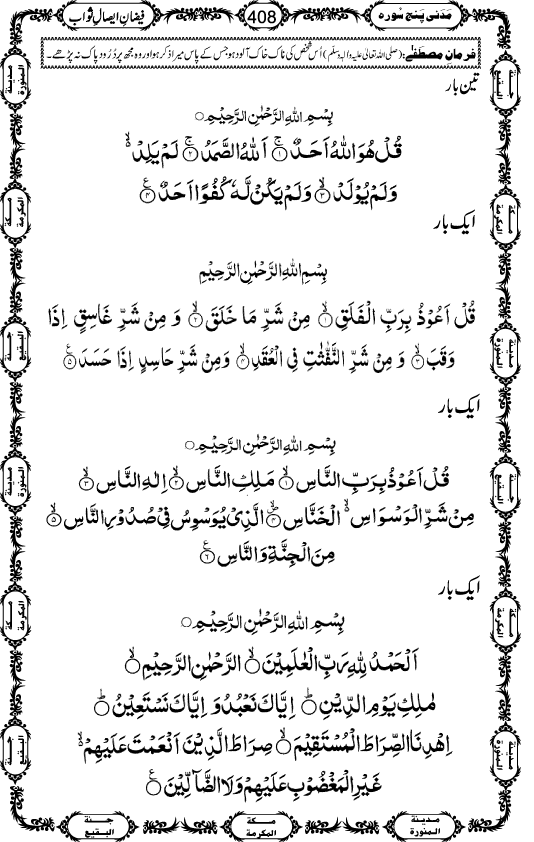 مَدَنی پنج سُورہ 408 فیضانِ ایصالِ ثواب
فرمانِ مصطفٰے: (صلی اللہ تعالیٰ علیہ واٰلہٖ وسلّم) اُس شخص کی ناک خاک آلود ہو جس کے پاس میرا ذکر ہو اور وہ مجھ پر دُرُودِ پاک نہ پڑھے۔
تین بار
بِسْمِ اللهِ الرَّحْمٰنِ الرَّحِيْمِ ○
قُلْ هُوَ اللهُ اَحَدٌ ۚ﴿۱﴾ اَللهُ الصَّمَدُ ۚ﴿۲﴾ لَمْ يَلِدْ ۙ
وَلَمْ يُوْلَدْ ۙ﴿۳﴾ وَلَمْ يَكُنْ لَّهٗ كُفُوًا اَحَدٌ ۠﴿۴﴾
ایک بار
بِسْمِ اللهِ الرَّحْمٰنِ الرَّحِيْمِ
قُلْ اَعُوْذُ بِرَبِّ الْفَلَقِ ۙ﴿۱﴾ مِنْ شَرِّ مَا خَلَقَ ۙ﴿۲﴾ وَ مِنْ شَرِّ غَاسِقٍ اِذَا
وَقَبَ ۙ﴿۳﴾ وَ مِنْ شَرِّ النَّفّٰثٰتِ فِی الْعُقَدِ ۙ﴿۴﴾ وَمِنْ شَرِّ حَاسِدٍ اِذَا حَسَدَ ۠﴿۵﴾
ایک بار
بِسْمِ اللهِ الرَّحْمٰنِ الرَّحِيْمِ ○
قُلْ اَعُوْذُ بِرَبِّ النَّاسِ ۙ﴿۱﴾ مَلِكِ النَّاسِ ۙ﴿۲﴾ اِلٰهِ النَّاسِ ۙ﴿۳﴾
مِنْ شَرِّ الْوَسْوَاسِ ۙ الْخَنَّاسِ ۪ۙ﴿۴﴾ الَّذِیْ يُوَسْوِسُ فِیْ صُدُوْرِ النَّاسِ ۙ﴿۵﴾
مِنَ الْجِنَّةِ وَالنَّاسِ ۠﴿۶﴾
ایک بار
بِسْمِ اللهِ الرَّحْمٰنِ الرَّحِيْمِ ○
اَلْحَمْدُ لِلّٰهِ رَبِّ الْعٰلَمِيْنَ ۙ﴿۱﴾ الرَّحْمٰنِ الرَّحِيْمِ ۙ﴿۲﴾
مٰلِكِ يَوْمِ الدِّيْنِ ؕ﴿۳﴾ اِيَّاكَ نَعْبُدُ وَ اِيَّاكَ نَسْتَعِيْنُ ؕ﴿۴﴾
اِهْدِنَا الصِّرَاطَ الْمُسْتَقِيْمَ ۙ﴿۵﴾ صِرَاطَ الَّذِيْنَ اَنْعَمْتَ عَلَيْهِمْ ۙ۬﴿۶﴾
غَيْرِ الْمَغْضُوْبِ عَلَيْهِمْ وَلَا الضَّآلِّيْنَ ۠﴿۷﴾
جنّة البقيع
مكة المكرمة
مدينة المنورة